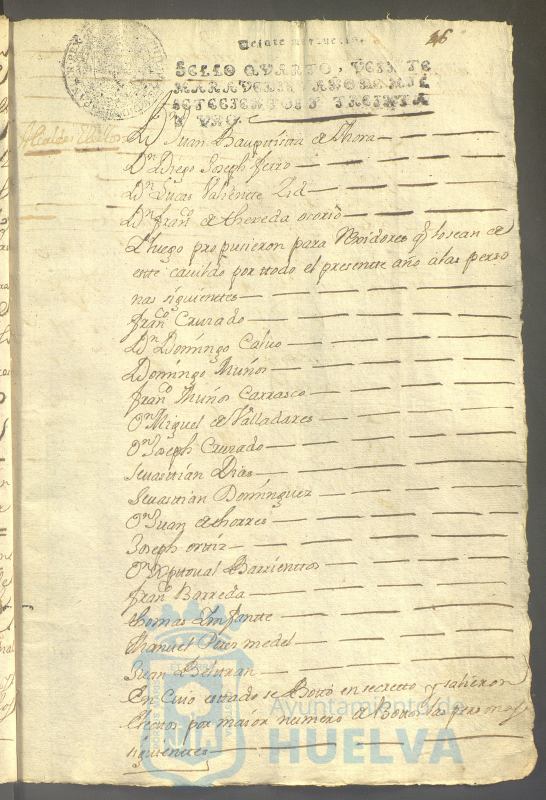 Veinte maravedis.
26
SELLO QVARTO, VEINTE
MARAVEDIS, AÑO DE MIL
SETECIENTOS Y TREINTA
Y VNO.
Alcaldes
Dn Juan Baupttistta de Mora
Dn Diego Joseph
Dn Lucas Valientte Zid
Dn Franco de Heredia osorio
Y luego propusieron para Rexidores q lo sean de
estte cauildo por ttodo el presentte año a las perso
nas siguienttes
Franco Cruzado
Dn Domingo Caluo
Domingo Muños
Franco Muños Carrasco
Dn Miguel de Valladares
Dn Joseph Cruzado
Seuasttian Dias
Seuasttian Dominguez
Dn Juan de ttorres
Joseph orttiz
Dn Xpttoual Barrienttos
Franco Barreda
thomas Infantte
Manuel Peres medel
Juan Belttran
En Cuio esttado se Bottó en secretto y salieron
electtos por maior numero de Bottos las personas
siguienttes
Ayuntamiento de
HUELVA